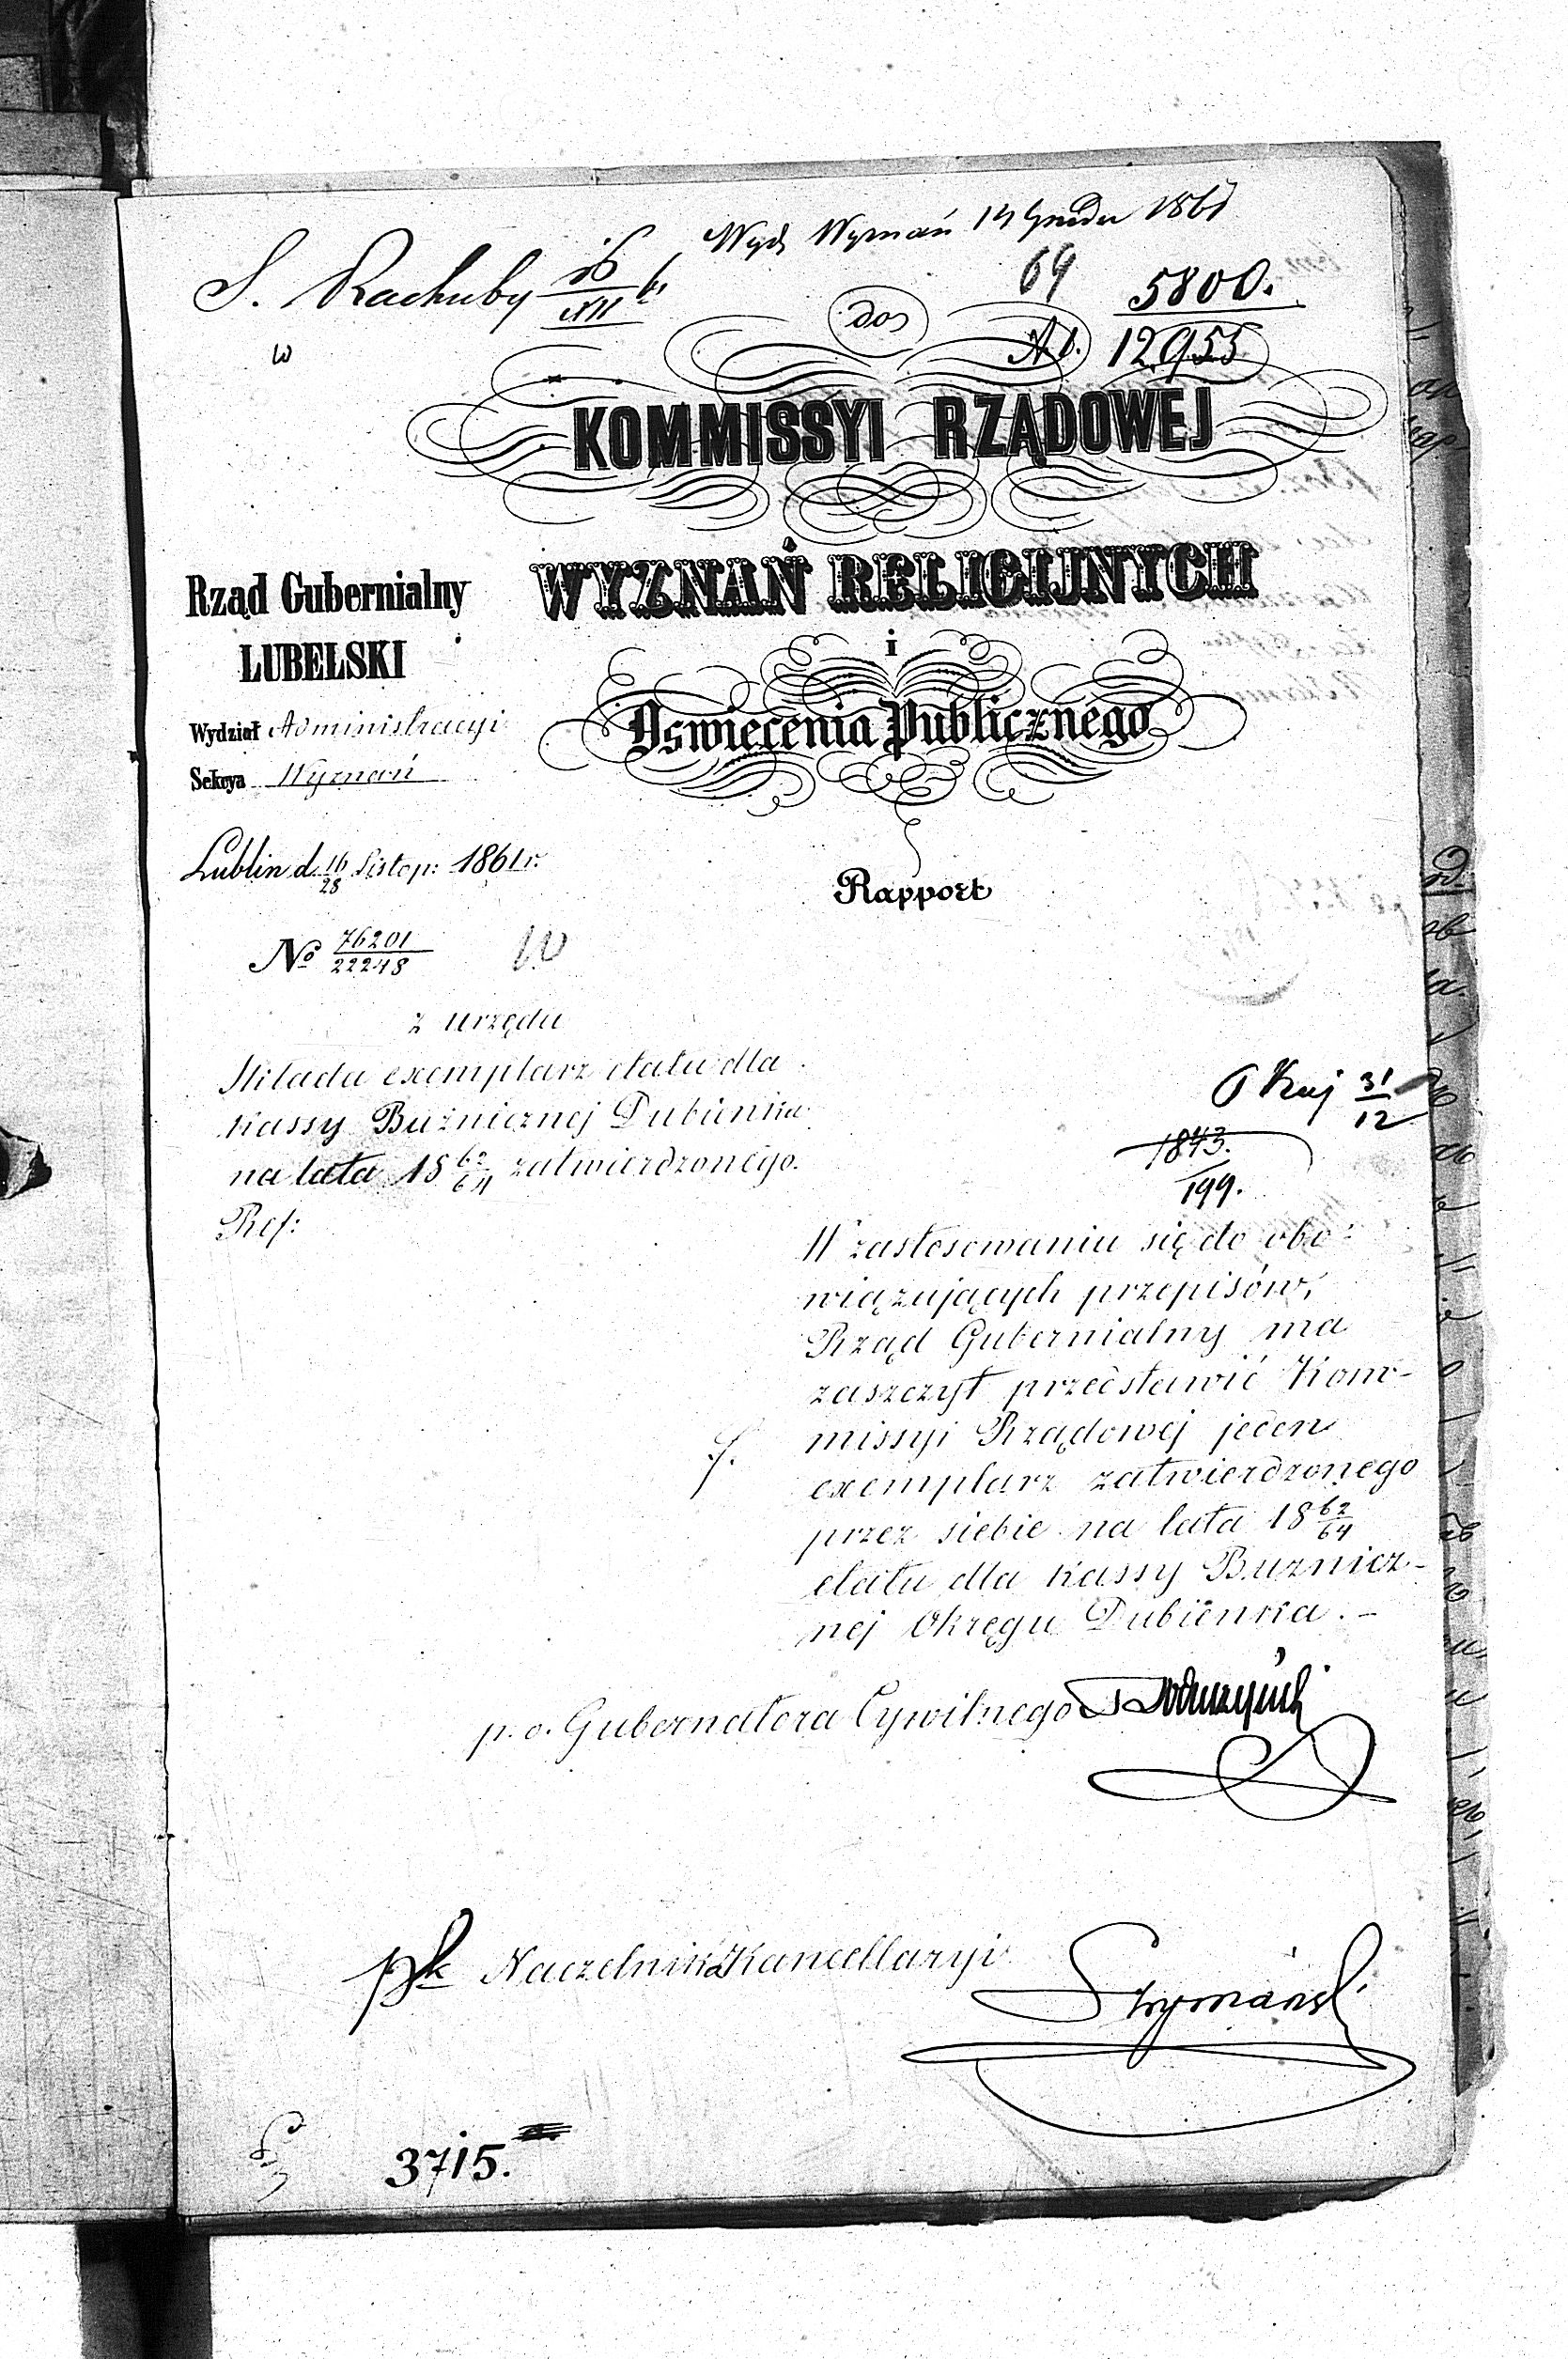 Wydz Wyznań 14 Grudn 1861
S. Rachuby 16/XII 61
69
5800.
12955
w
do
KOMMISSYI RZĄDOWEJ
WYZNAŃ RELIGIJNYCH
i
Oswiecenia Publicznego
Rząd Gubernialny
LUBELSKI
Wydział Administracyi
Sekcya Wyznań
Lublin d. 16/28 Listop: 1861 r.
Rapport
No 76201/22248
z urzędu
Składa exemplarz etatu dla
Kassy Bużnicznej Dubienka
na lata 18 62/64 zatwierdzonego.
Ref:
31/12
1843.
199.
W zastosowaniu się do obo-
wiązujących przepisów,
Rząd Gubernialny ma
zaszczyt przedstawić Kom-
missyi Rządowej jeden
exemplarz zatwierdzonego
przez siebie na lata 18 62/64
etatu dla Kassy Bużnicz-
nej Okręgu Dubienka. -
p. o. Gubernatora Cywilnego
Naczelnika Kancellaryi
Szymański
3715.